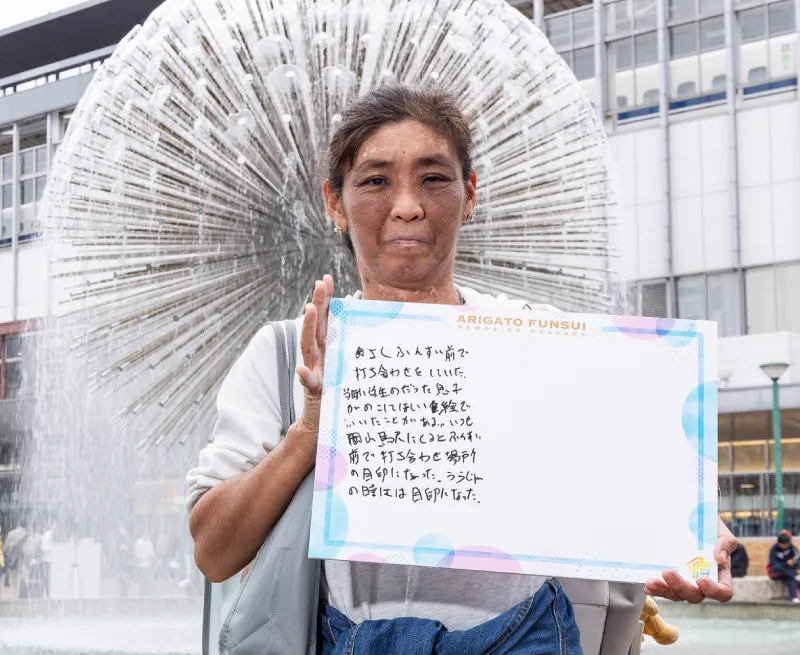 ARIGATO FUNSUI
MEMORIES MESSAGE
ふんすい前で
打ち合わせをしていた。
学生のだった息子
がのこしてほしい
いいたことがある。いつも
岡山駅
前で打ち合わせ場所
の目印になった。うらじゃ
の時には目印になった。